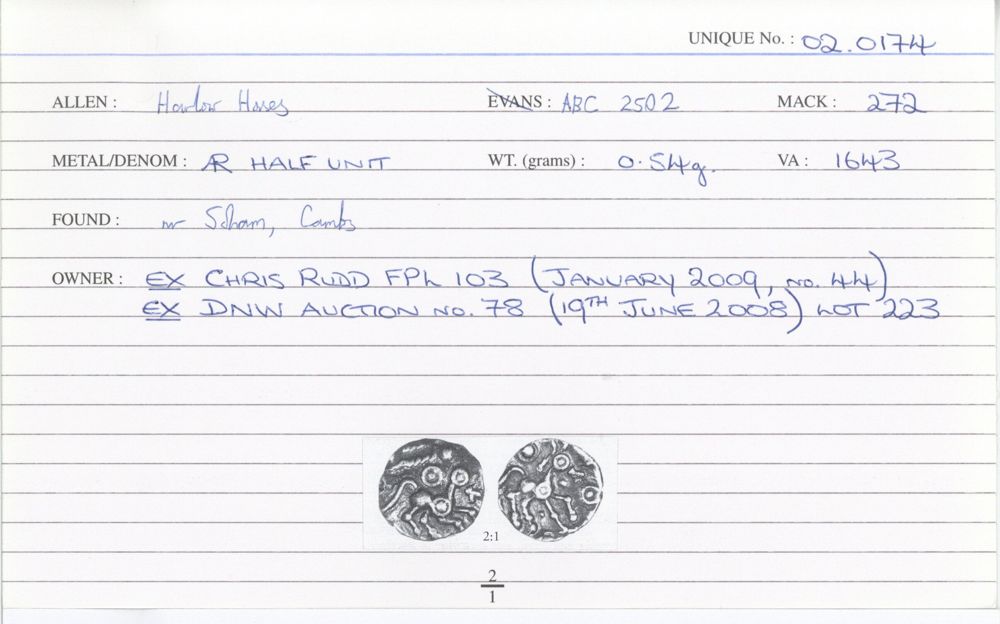 UNIQUE No. : 02.0174
ALLEN : Harlow Hares EVANS : ABC 2502 MACK : 272
METAL/DENOM : AR HALF UNIT WT. (grams) : 0.54g. VA : 1643
FOUND : nr Soham, Cambs
OWNER : EX CHRIS RUDD FPL 103 (JANUARY 2009, no. 44)
EX DNW AUCTION NO. 78 (19TH JUNE 2008) LOT 223
2:1
2
1